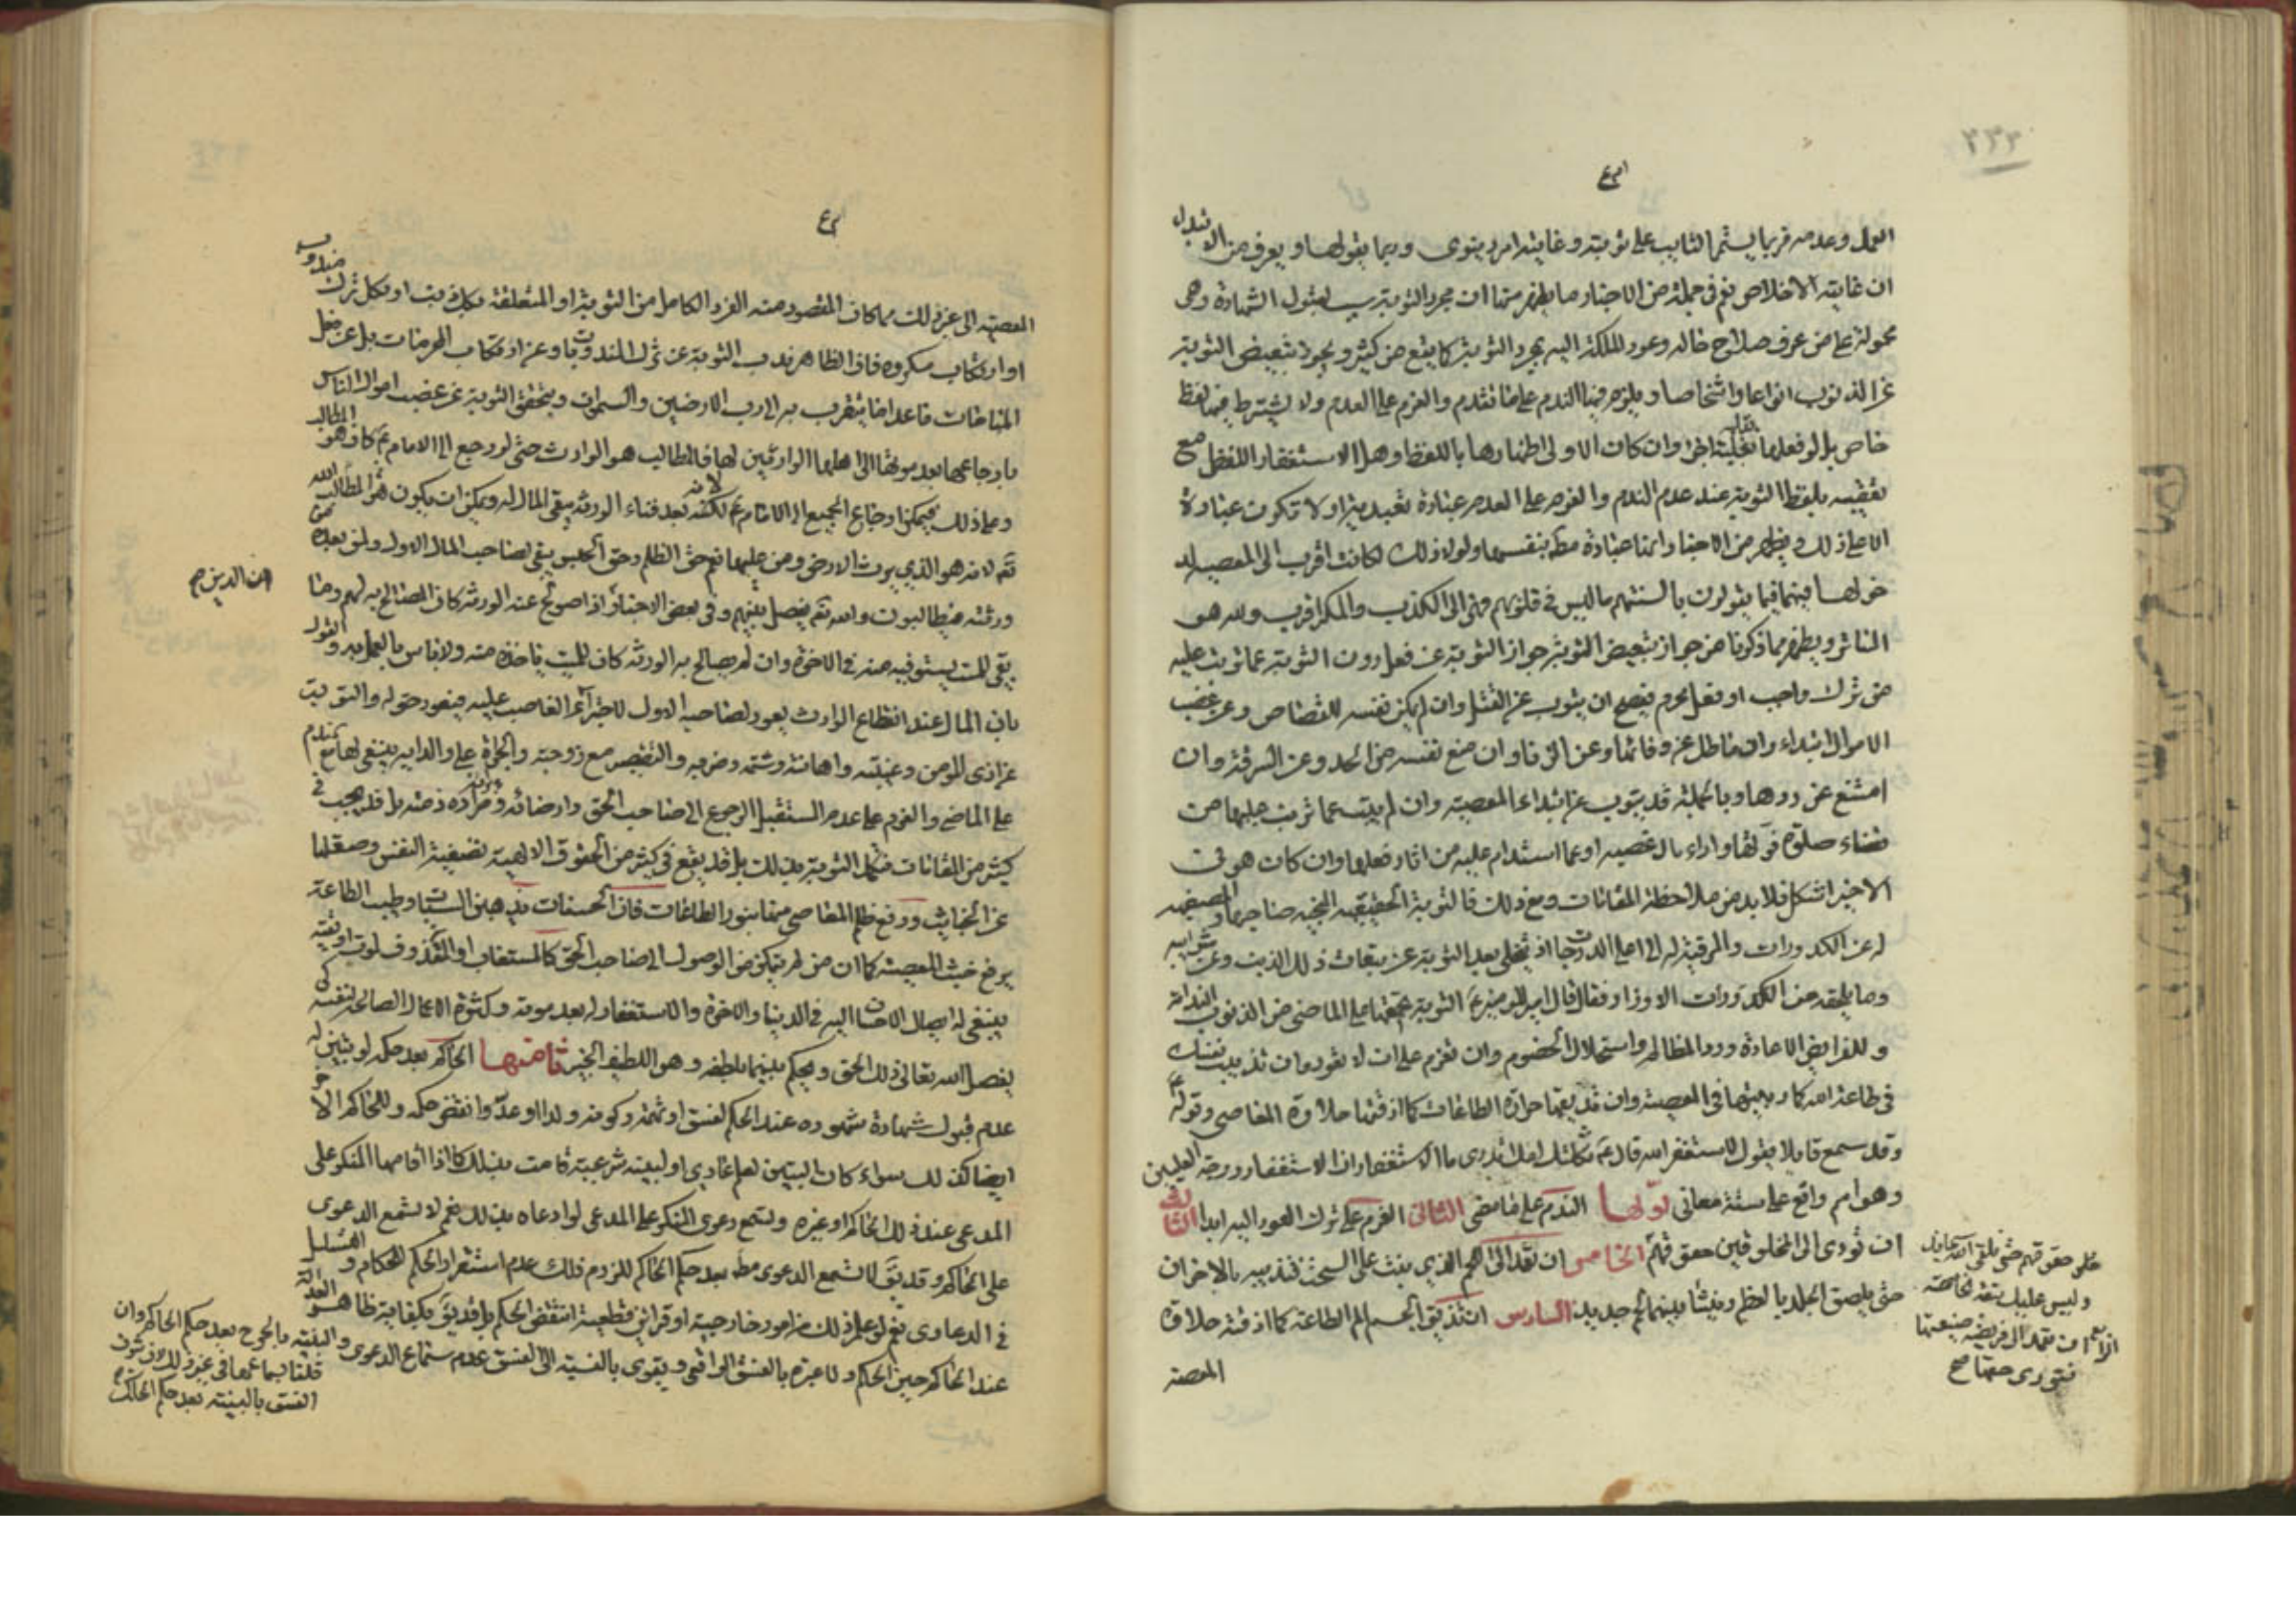 ٣٣٣
العمل وعدمه فربما يستمر التايب على توبته وغايته امر دينوى وربما يقولها ويعرف من الابتداء
ان غايته الاخلاص نعم فى جملة من الاخبار ما يظهر منها ان مجرد التوبة سبب لقبول الشهادة وهى
محمولة على من عرف صلاح حاله وعود الملكة اليه بمجرد التوبة كما يقع من كثير ويجوز تبعيض التوبة
عن الذنوب انواعا واشخاصا ويلزم فيها الندم على ما تقدم والعزم على العدم ولا يشترط فيها لفظ
خاص بل لو فعلها بقلبه اجزا وان كان الاولى اظهارها باللفظ وهل الاستغفار اللفظى مع
بلفظ التوبة عند عدم الندم والعزم على العدم عبادة تعبدية او لا تكون عبادة
الا على ذلك ويظهر من الاخبار انها عبادة بنفسها ولولا ذلك لكانت اقرب الى المعصية
فيما يقولون بالسنتهم ما ليس فى قلوبهم فهى الى الكذب والمكر اقرب والله هو
الساتر ويظهر مما ذكرنا من جواز تبعيض التوبة جواز التوبة عن فعل دون التوبة عما ترتب عليه
من ترك واجب او فعل محرم فيصح ان يتوب عن القتل وان لم يمكن نفسه للقصاص وعن غصب
الاموال ابتداء وان ماطل عن وفائها وعن الزنا وان منع نفسه من الحد وعن السرقة وان
امتنع عن ردها وبالجملة قد يتوب عن ابتداء المعصية وان لم يتب عما ترتب عليها من
قضاء صلوة فوتها واداء مال غصبه او عما استدام عليه من اثار فعلها وان كان هو فى
الاخير اشكل فلا بد من ملاحظة المقامات ومع ذلك فالتوبة الحقيقية المنجية صاحبها والمصفية
له عن الكدورات والمرقية له الى اعلى الدرجات اذ تخلى بعد التوبة عن تبعات ذلك الذنب وعن شوائبه
وما يلحقه من الكدورات الاوزار فقال قال امير المؤمنين ع التوبة يجمعها على الماضى من الذنوب الندامة
وللفرايض الاعادة ورد المظالم واستحلال الخصوم وان تعزم على ان لا تعود وان تذيب نفسك
فى طاعة الله كما ربيتها فى المعصية وان تذيقها مرارة الطاعات كما اذقتها حلاوة المعاصى وقوله ع
وقد سمع قايلا يقول استغفر الله قال ع ثكلتك امك اتدرى ما الاستغفار ان الاستغفار درجة العليين
وهو اسم واقع على ستة معانى اولها الندم على ما مضى الثانى العزم على ترك العود اليه ابدا الثالث
ان تؤدى الى المخلوقين حقوقهم الخامس ان تعمد الى اللحم الذى ينبت على السحت فتذيبه بالاحزان
حتى يلصق الجلد بالعظم وينشا بينهما لحم جديد السادس ان تذيق الجسم الم الطاعة كما اذقته حلاوة
المعصية
حقوقهم حتى تلقى الله
وليس عليك تبعة
الرابع ان تعمد الى فريضة ضيعتها
فتؤدى حقها صح
المعصية الى غير ذلك مما كان المقصود منه الفرد الكامل من التوبة او المتعلقة بكل ذنب او بكل ترك مندوب
او ارتكاب مكروه فان الظاهر ندب التوبة عن ترك المندوبات وعن ارتكاب المكروهات بل عن فعل
المباحات ما عدا ما يتقرب به الى رب الارضين والسموات ويتحقق التوبة عن غصب اموال الناس
بارجاعها بعد موتها الى اهلها الوارثين لها فالمطالب هو الوارث حتى لو رجع الى الامام ع كان هو المطالب
وعلى ذلك فيمكن ارجاع الجميع الى الامام ع لانه بعد فناء الورثة يبقى المال له ويمكن ان يكون هو المطالب الله
تعم لانه هو الذى يرث الارض ومن عليها نعم حق الظلم وحق الحبس يبقى لصاحب المال الاول ولمن بعده
ورثته فيطالبون والله تعم يفصل بينهم وفى بعض الاخبار اذا صولح عنه الورثة كان المصالح به لهم وما
بقى للميت يستوفيه منه فى الاخرة وان لم يصالح به الورثة كان للميت ياخذه منه ولا باس بالعمل به والقول
بان المال عند انقطاع الوارث يعود لصاحبه الاول الغاصب عليه فيعود حقه له والتوبة
عن اذى المؤمن وغيبته واهانته وشتمه وضربه والتقصير مع زوجته والجراة على والديه ينبغى لها مع الندم
على الماضى والعزم على عدم المستقبل الرجوع الى صاحب الحق وارضائه ذمته بل قد يجب فى
كثير من المقامات فتكمل التوبة بذلك بل قد يقع فى كثير من الحقوق الالهية تصفية النفس وصقلها
عن الخبايث ورفع ظلم المعاصى منها بنور الطاعات فان الحسنات يذهبن السيئات وطيب الطاعة
يرفع خبث المعصية كما ان من لم يتمكن من الوصول الى صاحب الحق كالمستغاب او المقذوف لموت او تقية
ينبغى له ايصال الاحسان اليه فى الدنيا والاخرة والاستغفار له بعد موته وكثرة الاعمال الصالحة لنفسه
يفصل الله تعالى ذلك الحق ويحكم بينهما بلطفه وهو اللطيف الخبير ثامنها الحاكم بعد حكمه لو تبين له
عدم قبول شهادة شهوده عند الحكم لفسق او تهمة وكونه ولدا او عدوا نقض حكمه وللحاكم الاخر
ايضا كذلك سواء كان التبين لعلم عادى او لبينة شرعية قامت بذلك كما اذا اقامها المنكر على
المدعى عند ذلك الحاكم او غيره وتسمع دعوى المنكر على المدعى لو ادعاه بذلك نعم لا تسمع الدعوى
على الحاكم وقد يق لا تسمع الدعوى مطلقا بعد حكم الحاكم للزوم ذلك عدم استقرار الحكم للحكام والتسلسل
فى الدعاوى نعم لو علم ذلك من امور خارجية او قراين قطعية انتقض الحكم بل قد يق بكفاية ظاهر العدالة
عند الحاكم حين الحكم ولا عبرة بالفسق الواقعى ويقوى بالنسبة الى الفسق عدم سماع الدعوى والبينة بالجرح بعد حكم الحاكم وان
قلنا بسماعها فى غير ذلك
الفسق بالبينة بعد حكم الحاكم